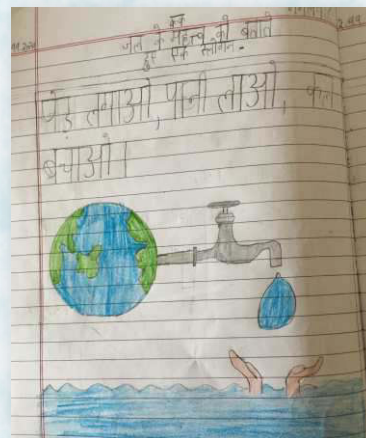 एक
जल के महत्त्व को बताते
हुए एक स्लोगन.
पेड़ लगाओ, पानी लाओ, कल
बचाओ।